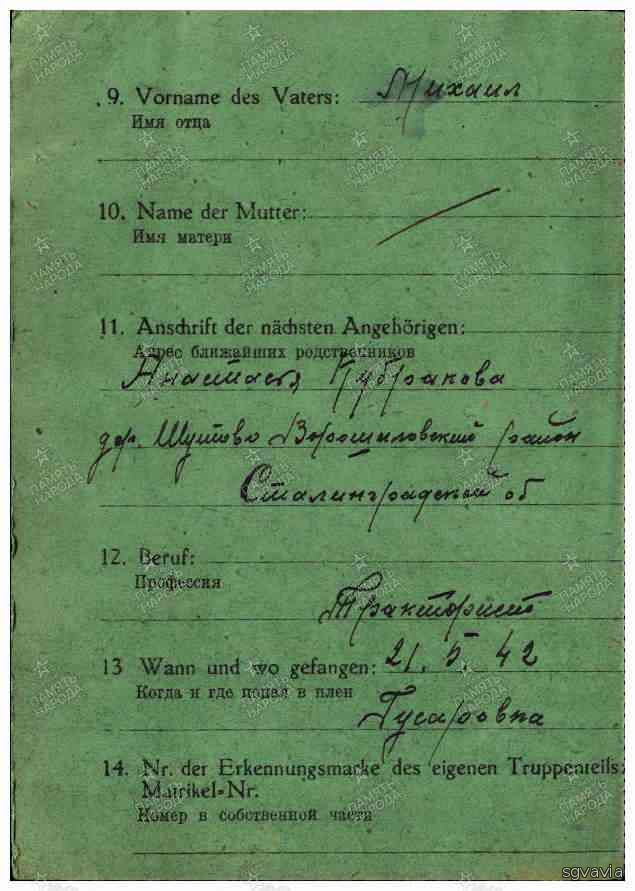 9. Vorname des Vaters: Михаил
Имя отца
10. Name der Mutter:
Имя матери
11. Anschrift der nächsten Angehörigen:
Адрес ближайших родственников
Анастасья Кубракова
дер. Шутово Ворошиловский район
Сталинградской об
12. Beruf:
Профессия
Тракторист
13 Wann und wo gefangen: 21. 5. 42
Когда и где попал в плен
Гусаровка
14. Nr. der Erkennungsmarke des eigenen Truppenteils:
Matrikel-Nr.
Номер в собственной части
ПАМЯТЬ НАРОДА
sgvavia